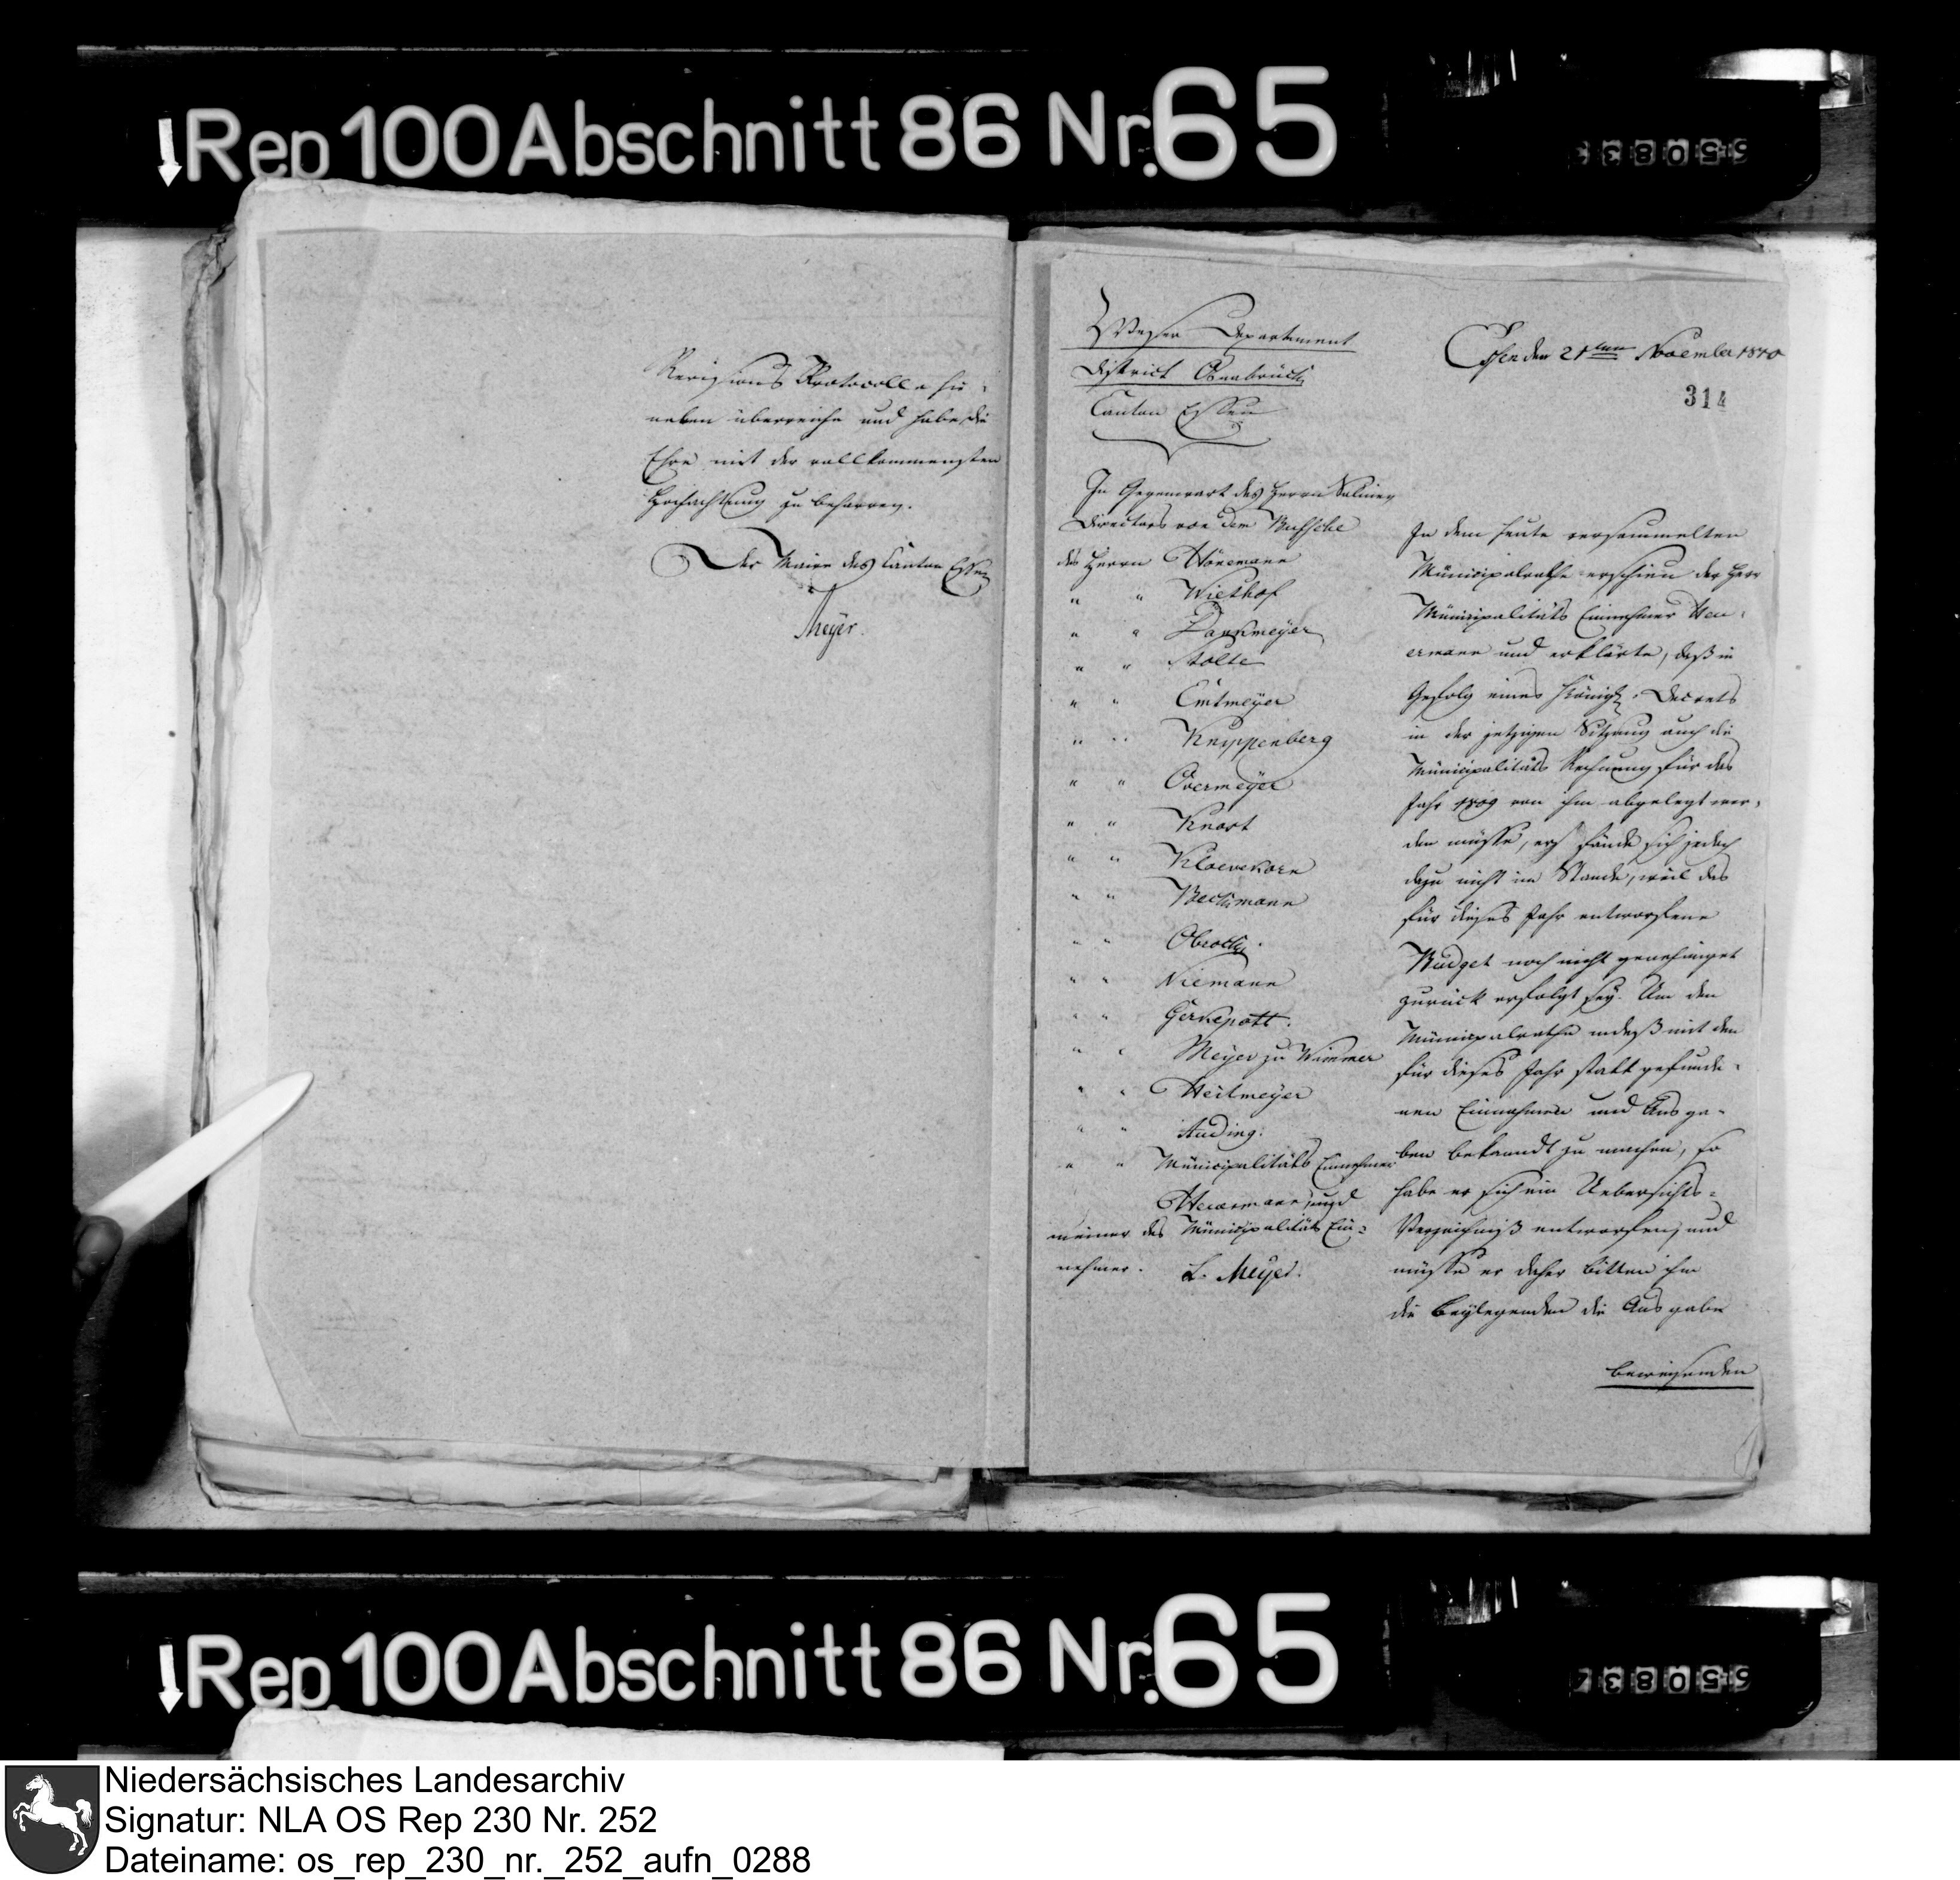 Rep 100 Abschnitt 86 Nr. 65
Revisions Protocolle hie-
neben überreiche und habe die
Ehre mit der vollkommensten
Hochachtung zu beharren.
Der Maire des Canton Essen
Meyer.
Weser Departement
District Osnabrück
Canton Essen
Essen den 21ten November 1810
314
In Gegenwart des Herrn Salinen
Directors von dem Bussche
des Herrn Hönemann
" " Wiethof
" " Dankmeyer
" " Stolte
" " Emtmeyer
" " Knippenberg
" " Overmeyer
" " Knost
" " Kloevekorn
" " Beckmann
" " Obrock.
" " Niemann
" " Gerkepott.
" " Meyer zu Wimmer
" " Heitmeyer
" " Auding.
" " Municipalitäts Einnehmer
Heuermann, und
meiner des Municipalitäts Ein-
nehmer. L. Meyer.
In dem heute versammelten
Municipalrathe erschien der Herr
Municipalitäts Einnehmer Heu-
ermann und erklärte, daß in
Gefolg eines Königl. Decrets
in der jetzigen Sitzung auch die
Municipalitäts Rechnung für das
Jahr 1809 von ihm abgelegt wer-
den müsse, er fände sich jedoch
dazu nicht im Stande, weil das
für dieses Jahr entworfene
Budget noch nicht genehmiget
zurück erfolgt sey. Um den
Municipalrathe indeß mit den
für dieses Jahr statt gefunde-
nen Einnahmen und Ausga-
ben bekanndt zu machen, so
habe er sich ein Uebersichts-
Verzeichniß entworfen, und
müsse er daher bitten ihm
die beylegenden die Ausgabe
beweisenden
Rep. 100 Abschnitt 86 Nr. 65
Niedersächsisches Landesarchiv
Signatur: NLA OS Rep 230 Nr. 252
Dateiname: os_rep_230_nr._252_aufn_0288